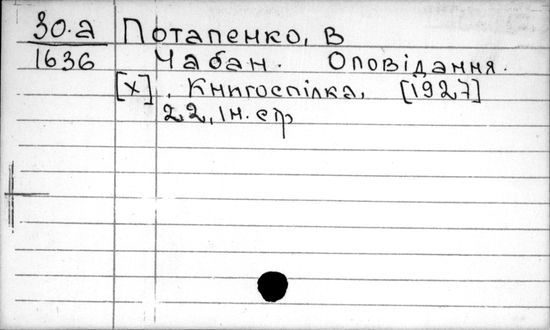 30.а Потапенко, В
1636 Чабан. Оповідання.
[х], Книгоспілка, [1927]
22, 1н. стр